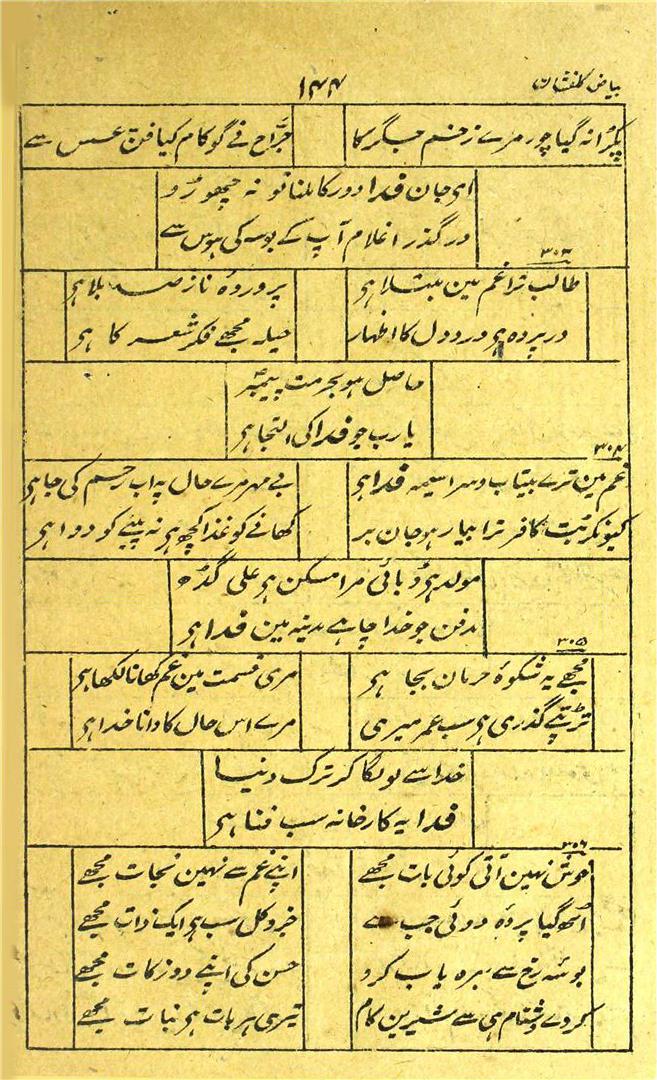 بیاض گلفشاں
۱۴۴
پکڑا نہ گیا چور مرے زخم جگر کا
جرّاح نے گو کام کیا فن عسس سے
ای جان فدا دور کا ملنا تو نہ چھوڑو
درگذر اغلام آپ کے بوسہ کی ہوس سے
۳۰۳
طالب ترا غم مین مبتلا ہی
پروردہٗ ناز صد بلا ہی
درپردہ ہی درد دل کا اظہار
حیلہ مجھے فکر شعر کا ہی
حاصل ہو بحرمت پیمبرؐ
یارب جو فدا کی التجا ہی
۳۰۴
غم مین ترے بیتاب و سراسیمہ فدا ہی
بے مہر مرے حال پہ اب رحم کی جا ہی
کیونکر بت کافر ترا بیمار ہو جان بر
کھانے کو غذا کچھ ہی نہ پینے کو دوا ہی
مولد ہی دبائی مرا مسکن ہی علی گڈہ
مدفن جو خدا چاہے مدینہ مین فدا ہی
۳۰۵
مجھے یہ شکوہٗ حرمان بجا ہی
مری قسمت مین غم کھانا لکھا ہی
تڑپتے گذری ہی سب عمر میری
مرے اس حال کا دانا خدا ہی
خدا سے لو لگا کر ترک دنیا
فدا یہ کارخانہ سب فنا ہی
۳۰۶
خوش نہین آتی کوئی بات مجھے
اپنے غم سے نہین نجات مجھے
اٹھ گیا پردہ دوئی جب سے
جز و کل سب ہی ایک ذات مجھے
بوسہٗ رخ سے بہرہ یاب کرو
حسن کی اپنے دو زکات مجھے
کر دے دشنام ہی سے شیرین کام
تیری ہر بات ہی نبات مجھے